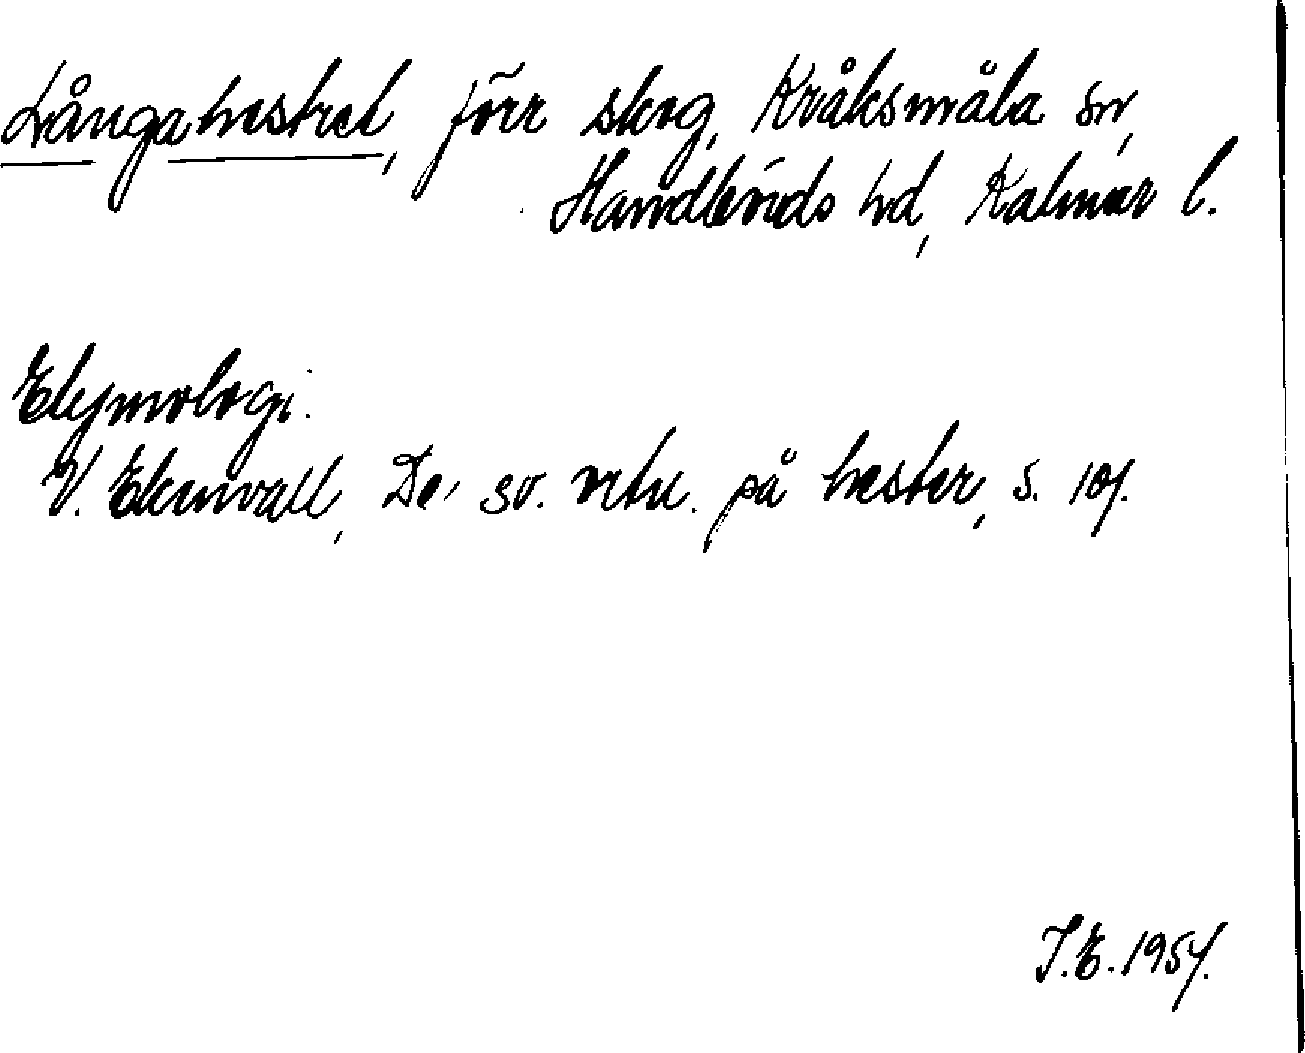 Långahestret, förr skog, Kråksmåla sn,
Handbörds hd, Kalmar l.
Etymologi.
V. Ekenvall, De sv. ortn. på hester, s. 107.
I.E. 1957.